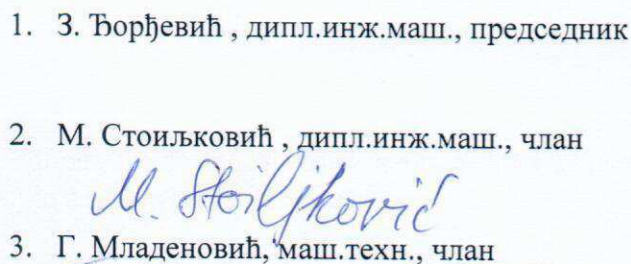 1. З. Ђорђевић , дипл.инж.маш., председник
2. М. Стоиљковић , дипл.инж.маш., члан
M. Stoiljković
3. Г. Младеновић, маш.техн., члан